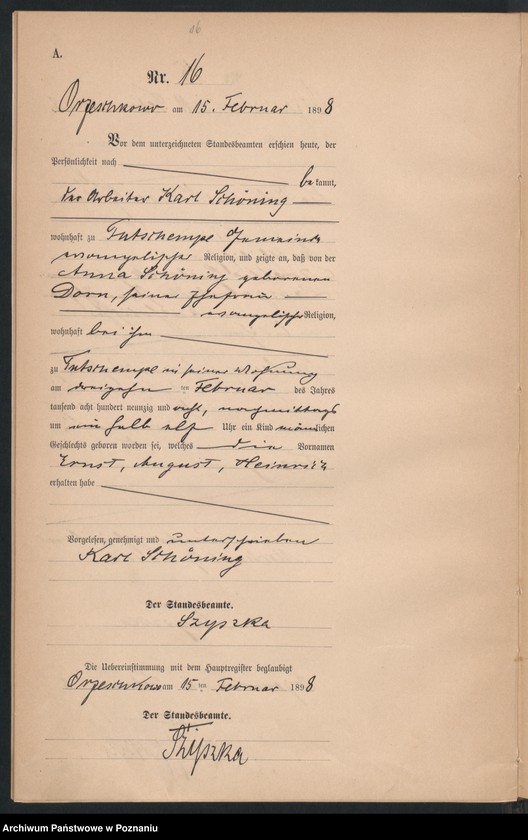 16
A.
Nr. 16
Orzeschkowo am 15. Februar 1898
Vor dem unterzeichneten Standesbeamten erschien heute, der
Persönlichkeit nach
bekannt,
der Arbeiter Karl Schöning
wohnhaft zu Tutschempe Gemeinde
evangelischer Religion, und zeigte an, daß von der
Anna Schöning geborenen
Dorn, seiner Ehefrau
evangelischer Religion,
wohnhaft bei ihm
zu Tutschempe in seiner Wohnung
am dreizehn ten Februar des Jahres
tausend acht hundert neunzig und acht, nachmittags
um ein halb elf Uhr ein Kind männlichen
Geschlechts geboren worden sei, welches die Vornamen
Ernst, August, Heinrich
erhalten habe
Vorgelesen, genehmigt und unterschrieben
Karl Schöning
Der Standesbeamte.
Szyszka
Die Uebereinstimmung mit dem Hauptregister beglaubigt
Orzeschkowo am 15 ten Februar 1898
Der Standesbeamte.
Szyszka
Archiwum Państwowe w Poznaniu